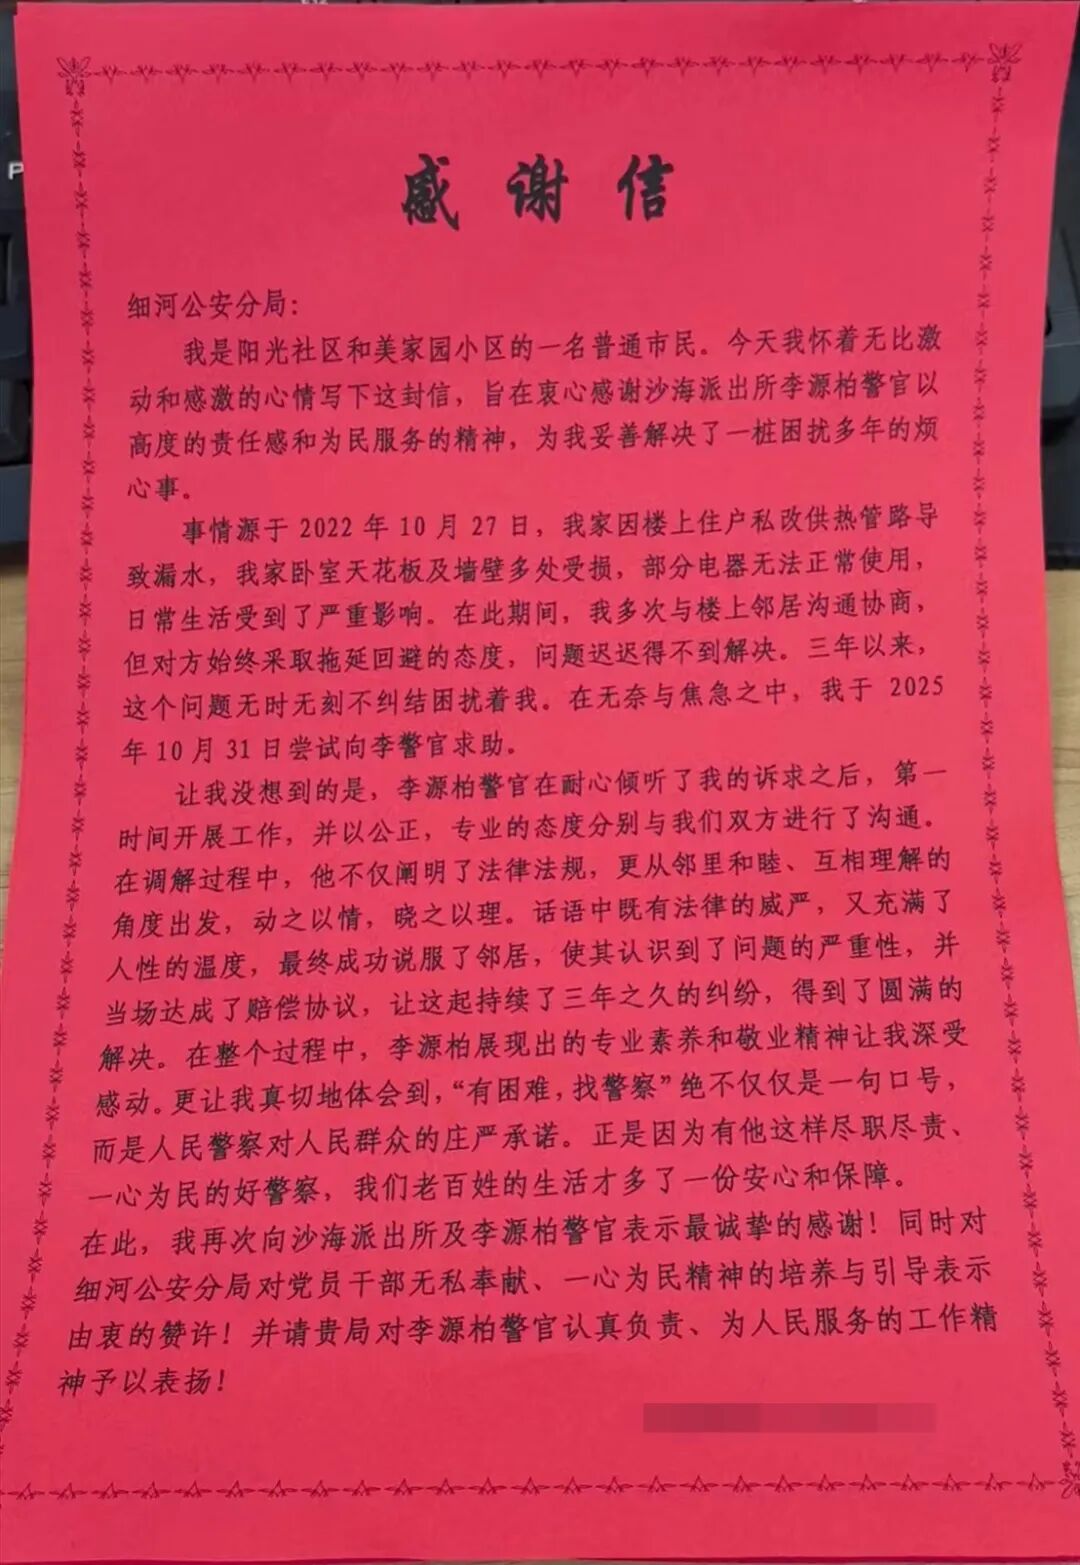 感谢信
细河公安分局：
我是阳光社区和美家园小区的一名普通市民。今天我怀着无比激
动和感激的心情写下这封信，旨在衷心感谢沙海派出所李源柏警官以
高度的责任感和为民服务的精神，为我妥善解决了一桩困扰多年的烦
心事。
事情源于 2022 年 10 月 27 日，我家因楼上住户私改供热管路导
致漏水，我家卧室天花板及墙壁多处受损，部分电器无法正常使用，
日常生活受到了严重影响。在此期间，我多次与楼上邻居沟通协商，
但对方始终采取拖延回避的态度，问题迟迟得不到解决。三年以来，
这个问题无时无刻不纠结困扰着我。在无奈与焦急之中，我于 2025
年 10 月 31 日尝试向李警官求助。
让我没想到的是，李源柏警官在耐心倾听了我的诉求之后，第一
时间开展工作，并以公正，专业的态度分别与我们双方进行了沟通。
在调解过程中，他不仅阐明了法律法规，更从邻里和睦、互相理解的
角度出发，动之以情，晓之以理。话语中既有法律的威严，又充满了
人性的温度，最终成功说服了邻居，使其认识到了问题的严重性，并
当场达成了赔偿协议，让这起持续了三年之久的纠纷，得到了圆满的
解决。在整个过程中，李源柏展现出的专业素养和敬业精神让我深受
感动。更让我真切地体会到，“有困难，找警察”绝不仅仅是一句口号，
而是人民警察对人民群众的庄严承诺。正是因为有他这样尽职尽责、
一心为民的好警察，我们老百姓的生活才多了一份安心和保障。
在此，我再次向沙海派出所及李源柏警官表示最诚挚的感谢！同时对
细河公安分局对党员干部无私奉献、一心为民精神的培养与引导表示
由衷的赞许！并请贵局对李源柏警官认真负责、为人民服务的工作精
神予以表扬！
P